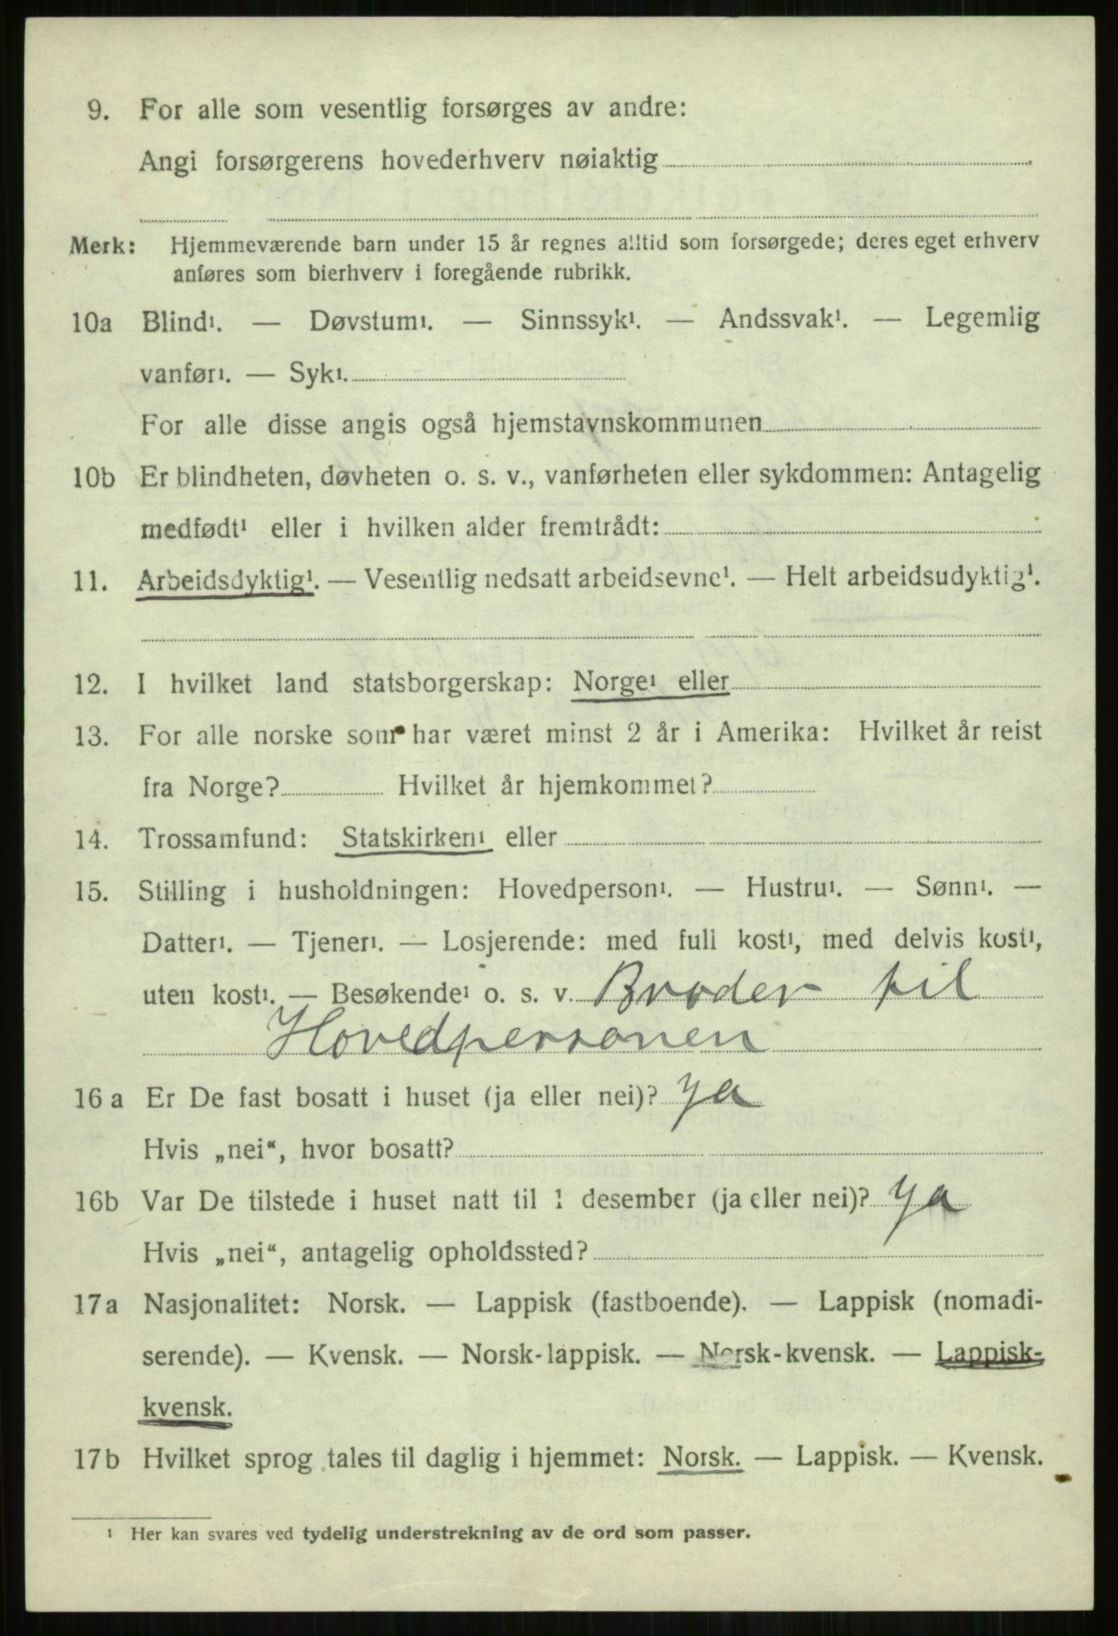 9. For alle som vesentlig forsørges av andre:
Angi forsørgerens hovederhverv nøiaktig
Merk: Hjemmeværende barn under 15 år regnes alltid som forsørgede; deres eget erhverv
anføres som bierhverv i foregående rubrikk.
10a Blind¹. — Døvstum¹. — Sinnssyk¹. — Andssvak¹. — Legemlig
vanfør¹. — Syk¹.
For alle disse angis også hjemstavnskommunen
10b Er blindheten, døvheten o. s. v., vanførheten eller sykdommen: Antagelig
medfødt¹ eller i hvilken alder fremtrådt:
11. Arbeidsdyktig¹. — Vesentlig nedsatt arbeidsevne¹. — Helt arbeidsudyktig¹.
12. I hvilket land statsborgerskap: Norge¹ eller
13. For alle norske som har været minst 2 år i Amerika: Hvilket år reist
fra Norge? Hvilket år hjemkommet?
14. Trossamfund: Statskirken¹ eller
15. Stilling i husholdningen: Hovedperson¹. — Hustru¹. — Sønn¹. —
Datter¹. — Tjener¹. — Losjerende: med full kost¹, med delvis kost¹,
uten kost¹. — Besøkende¹ o. s. v. Broder til
Hovedpersonen
16a Er De fast bosatt i huset (ja eller nei)? ya
Hvis „nei“, hvor bosatt?
16b Var De tilstede i huset natt til 1 desember (ja eller nei)? ya
Hvis „nei“, antagelig opholdssted?
17a Nasjonalitet: Norsk. — Lappisk (fastboende). — Lappisk (nomadi-
serende). — Kvensk. — Norsk-lappisk. — Norsk-kvensk. — Lappisk-
kvensk.
17b Hvilket sprog tales til daglig i hjemmet: Norsk. — Lappisk. — Kvensk.
¹ Her kan svares ved tydelig understrekning av de ord som passer.